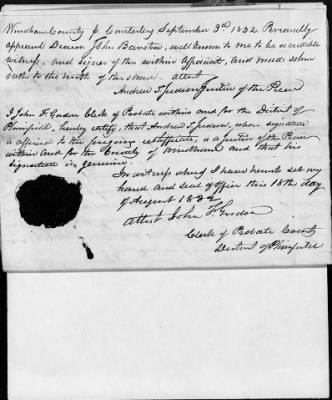 Windham County ss. Canterbury September 3rd 1832 Personally
appeared Deacon John Barstow, well known to me to be a credible
witness, and signer of the within Affidavit, and made solemn
oath to the truth of the same. attest
Andrew T. Judson Justice of the Peace
I John F. Gordon Clerk of Probate within and for the District of
Plainfield, hereby certify, that Andrew T. Judson, whose signature
is affixed to the foregoing certificate, is a Justice of the Peace
within and for the County of Windham and that his
signature is genuine.
In witness whereof I have hereunto set my
hand and seal of office this 18th day
of August 1832
Attest John F. Gordon
Clerk of Probate County
District of Plainfield